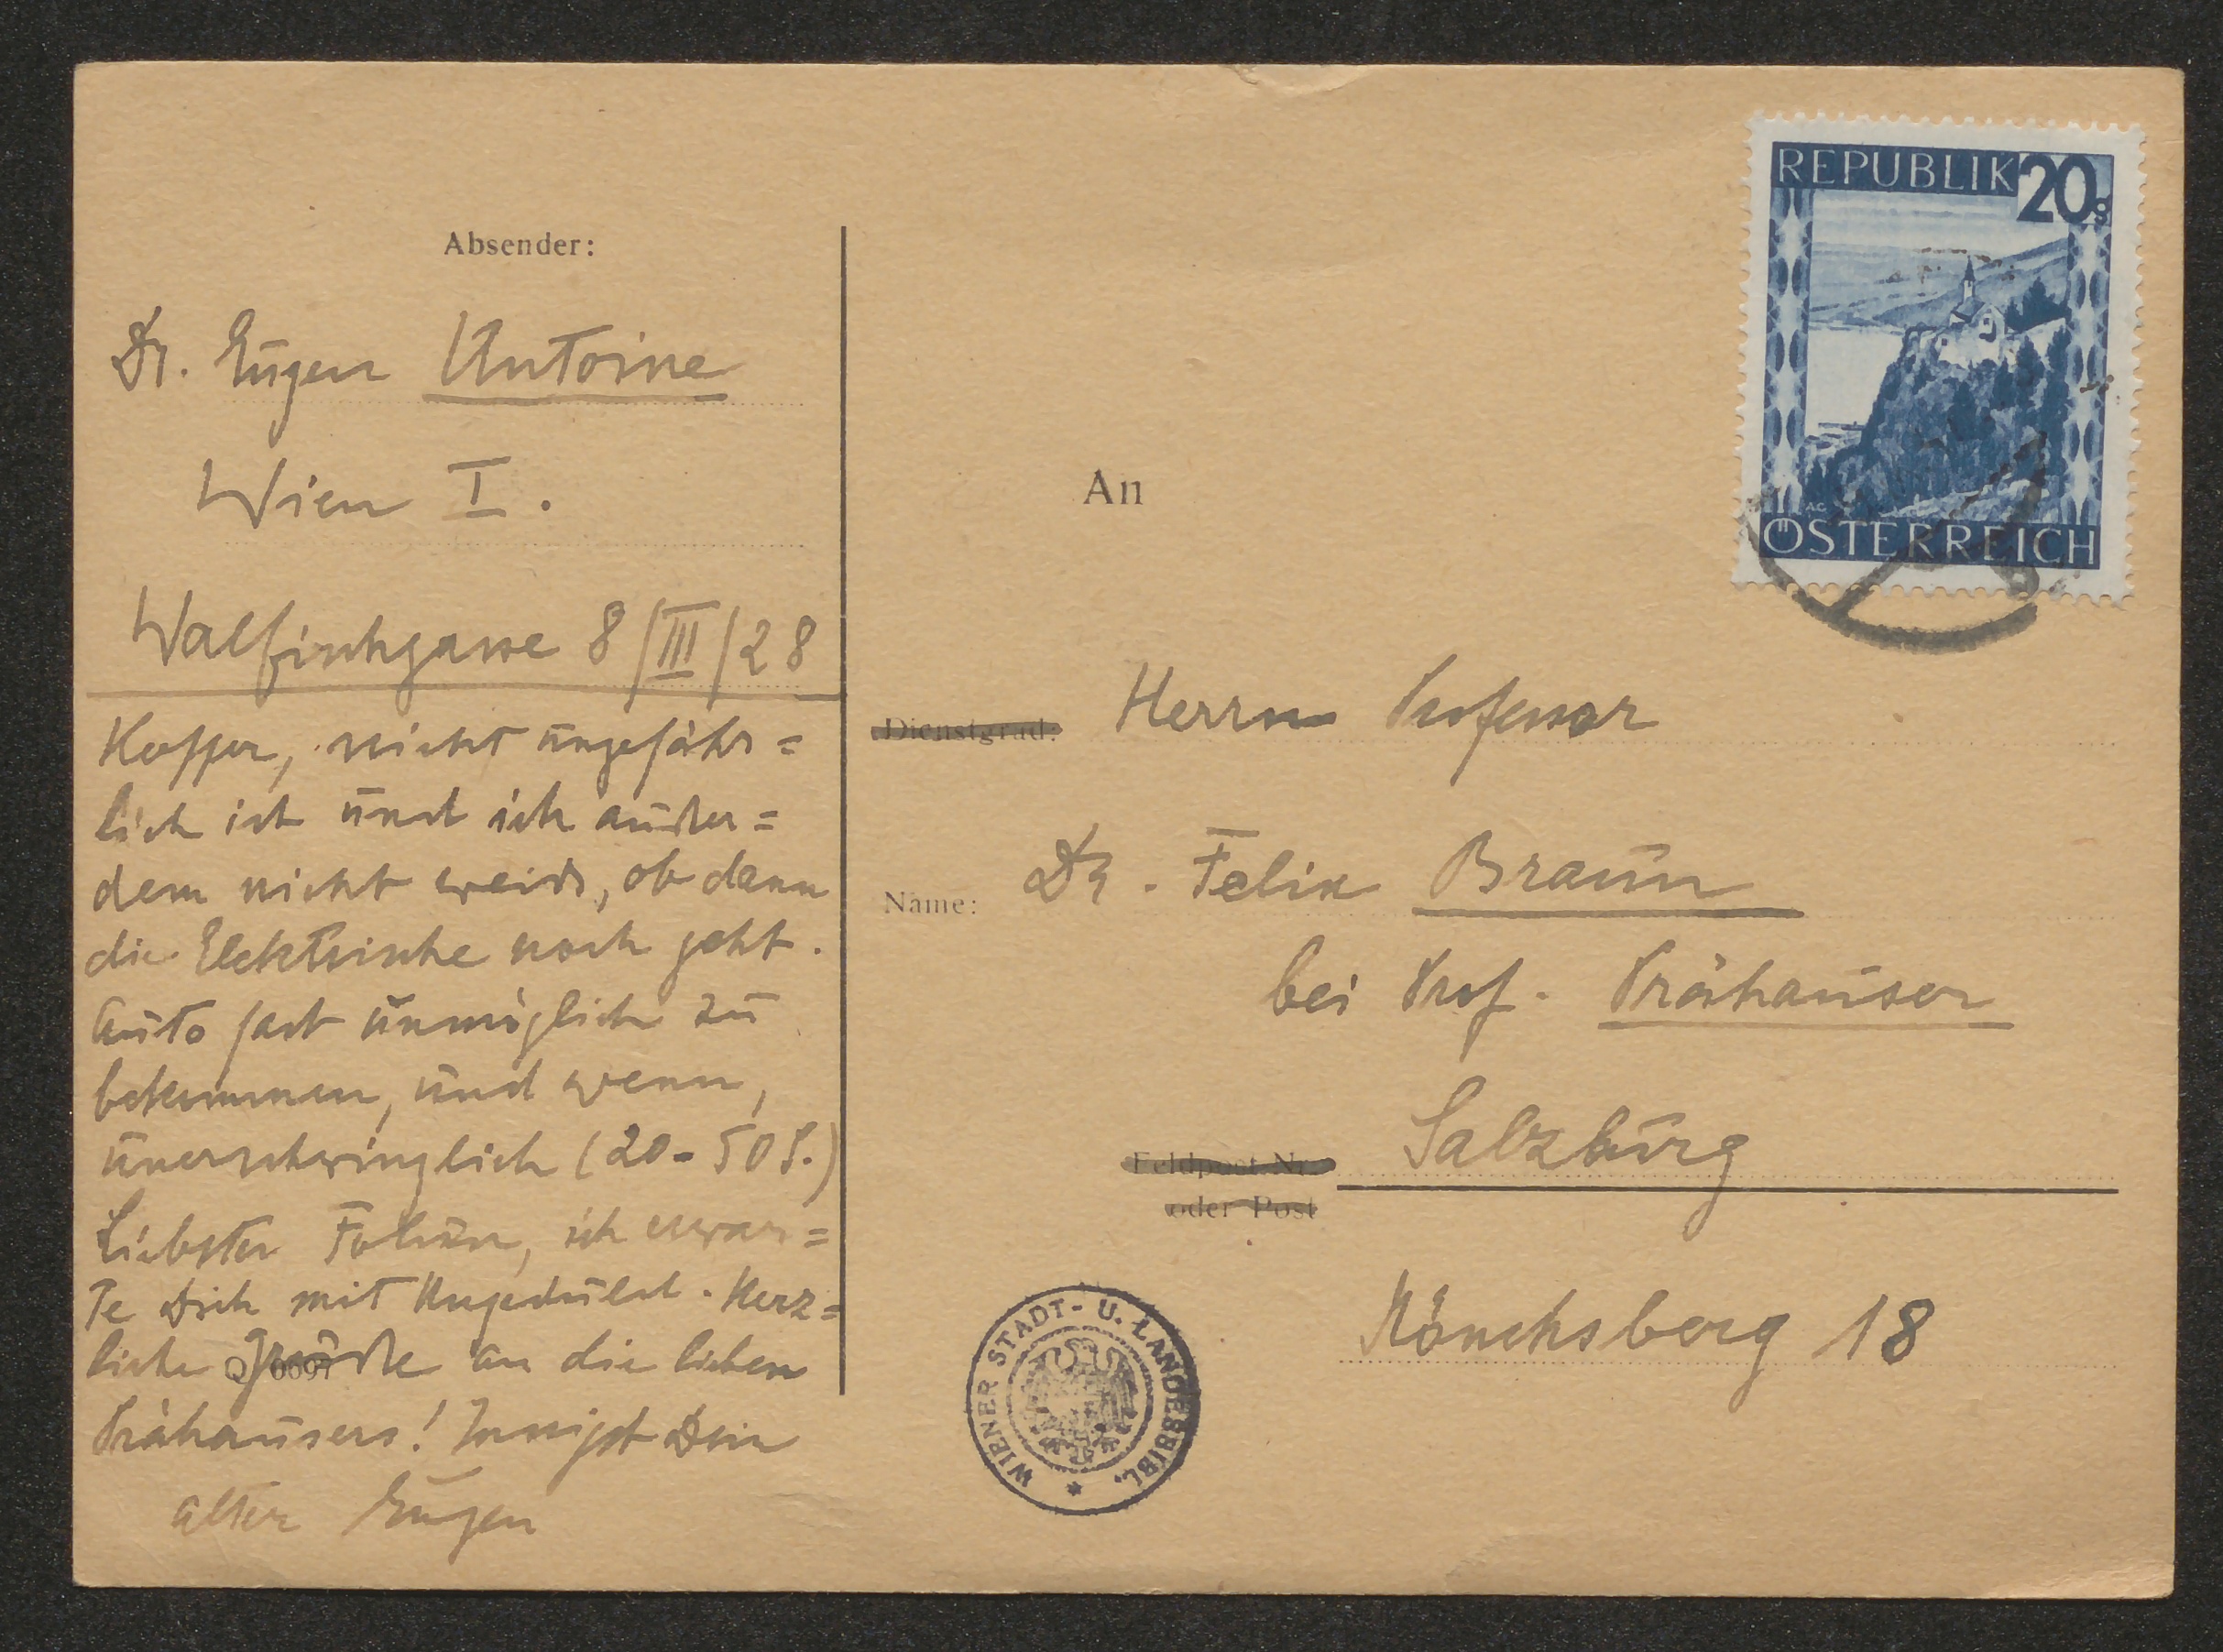 Absender:
Dr. Eugen Antoine
Wien I.
Walfischgasse 8/III/28
Koffer, nicht ungefähr=
lich ist und ich außer=
dem nicht weiß, ob dann
die Elektrische noch geht.
Auto fast unmöglich zu
bekommen, und wenn,
unerschwinglich (20-50 S.)
Liebster Felix, ich erwar=
te Dich mit Ungeduld. Herz=
liche Grüße an die lieben
Prähausers! Innigst Dein
alter Eugen
REPUBLIK 20g
ÖSTERREICH
An
Dienstgrad: Herrn Professor
Name: Dr. Felix Braun
bei Prof. Prähauser
Feldpost-Nr. Salzburg
oder Post
Mönchsberg 18
WIENER STADT- U. LANDESBIBL.